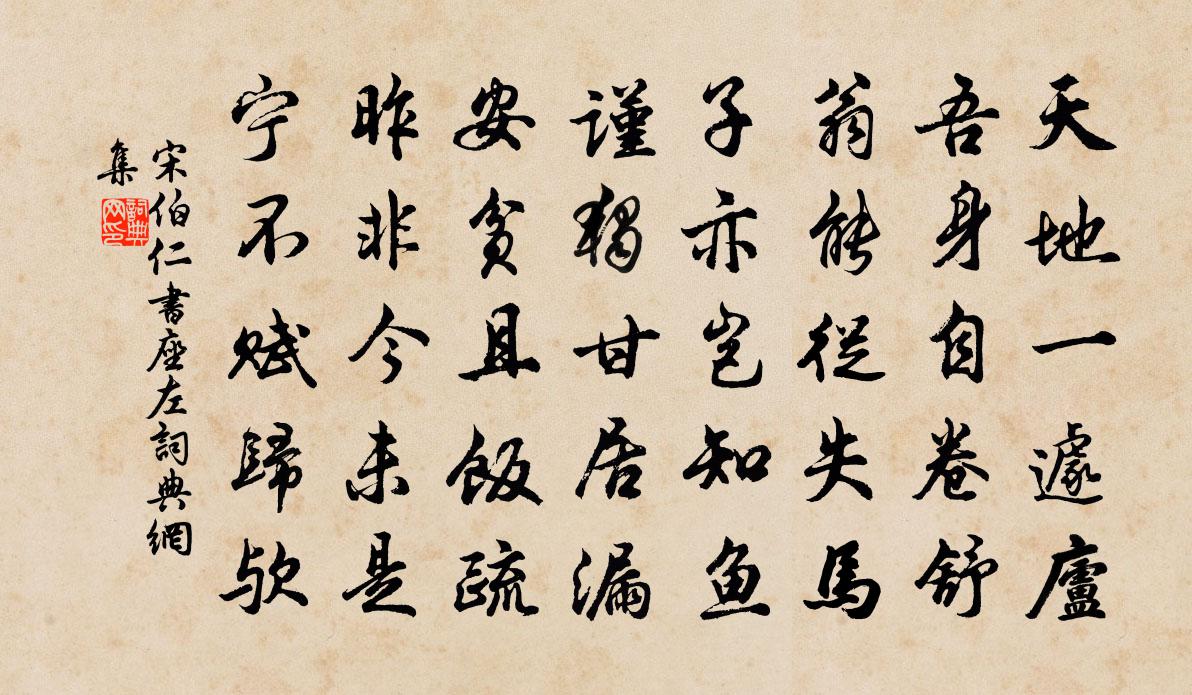 天地一遽廬
吾身自卷舒
翁能從失馬
子亦豈知魚
謹獨甘居漏
安貧且飯疏
昨非今未是
宁不賦歸欤
宋伯仁書座左詞典網
集
詞典網印